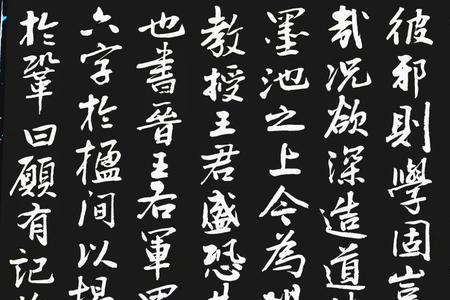 彼邪則學固豈
哉况欲深造道
墨池之上今為
教授王君盛恐
也書晉王右軍
六字於楹間以揭
於鞏曰願有記